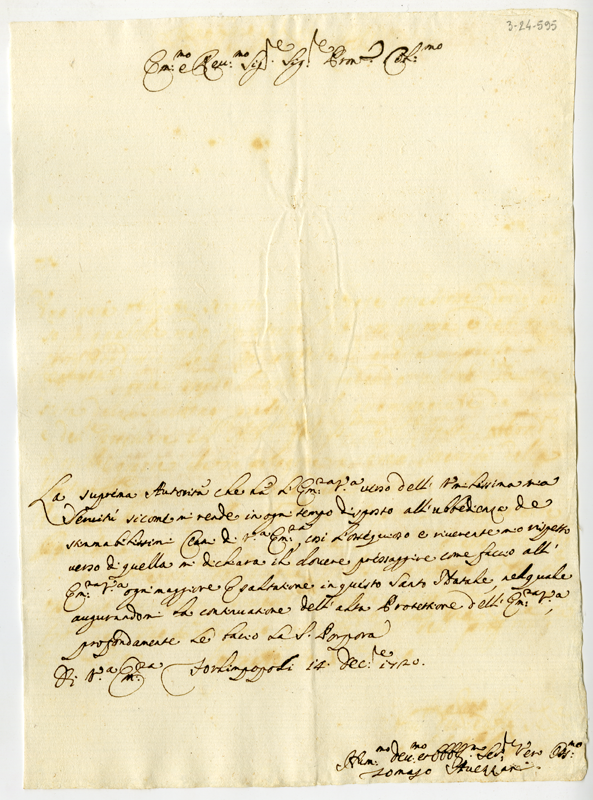 3-24-595
Em:mo e Reu:mo Sig.re Sig.re Pron. Col:mo
La suprema Autorità che hà l'Em:za V:a verso dell'Vmilissima mia
Seruitù sicome mi rende in ogni tempo disposto all'ubbedienza de
stimmatissimi Cenni di V:a Em:za, così l'ossequioso e riuerente mio rispetto
verso di quella mi dichiara il douere pressaggire come faccio all'
Em:za V:a ogni maggiore Esaltatione in questo Santo Natale, nel quale
augurandomi la continuatione dell'alta Protettione dell'Em:za V:a,
profondamente le bacio la S. Porpora
Di V:a Em:za Forlimpopoli 14 Dec:e 1720.
Hum:mo Deu:mo et Obblig:mo Ser:re Vero
Tomaso